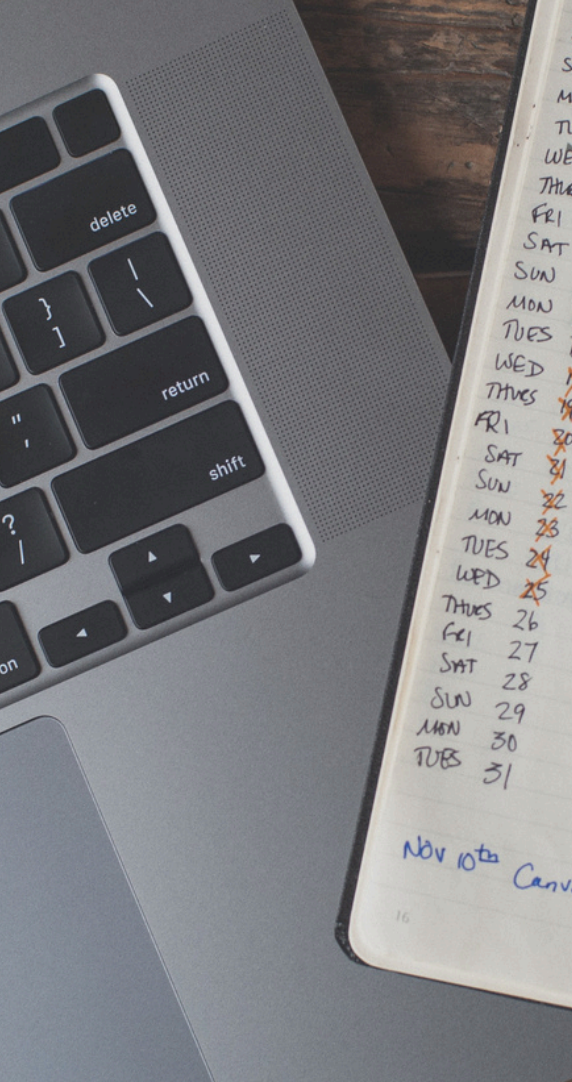 delete
|
\
}
]
return
"
,
shift
?
/
FRI
SAT
SUN
MON
TUES
WED
THURS 19
FRI 20
SAT 21
SUN 22
MON 23
TUES 24
WED 25
THURS 26
FRI 27
SAT 28
SUN 29
MON 30
TUES 31
Nov 10th
16